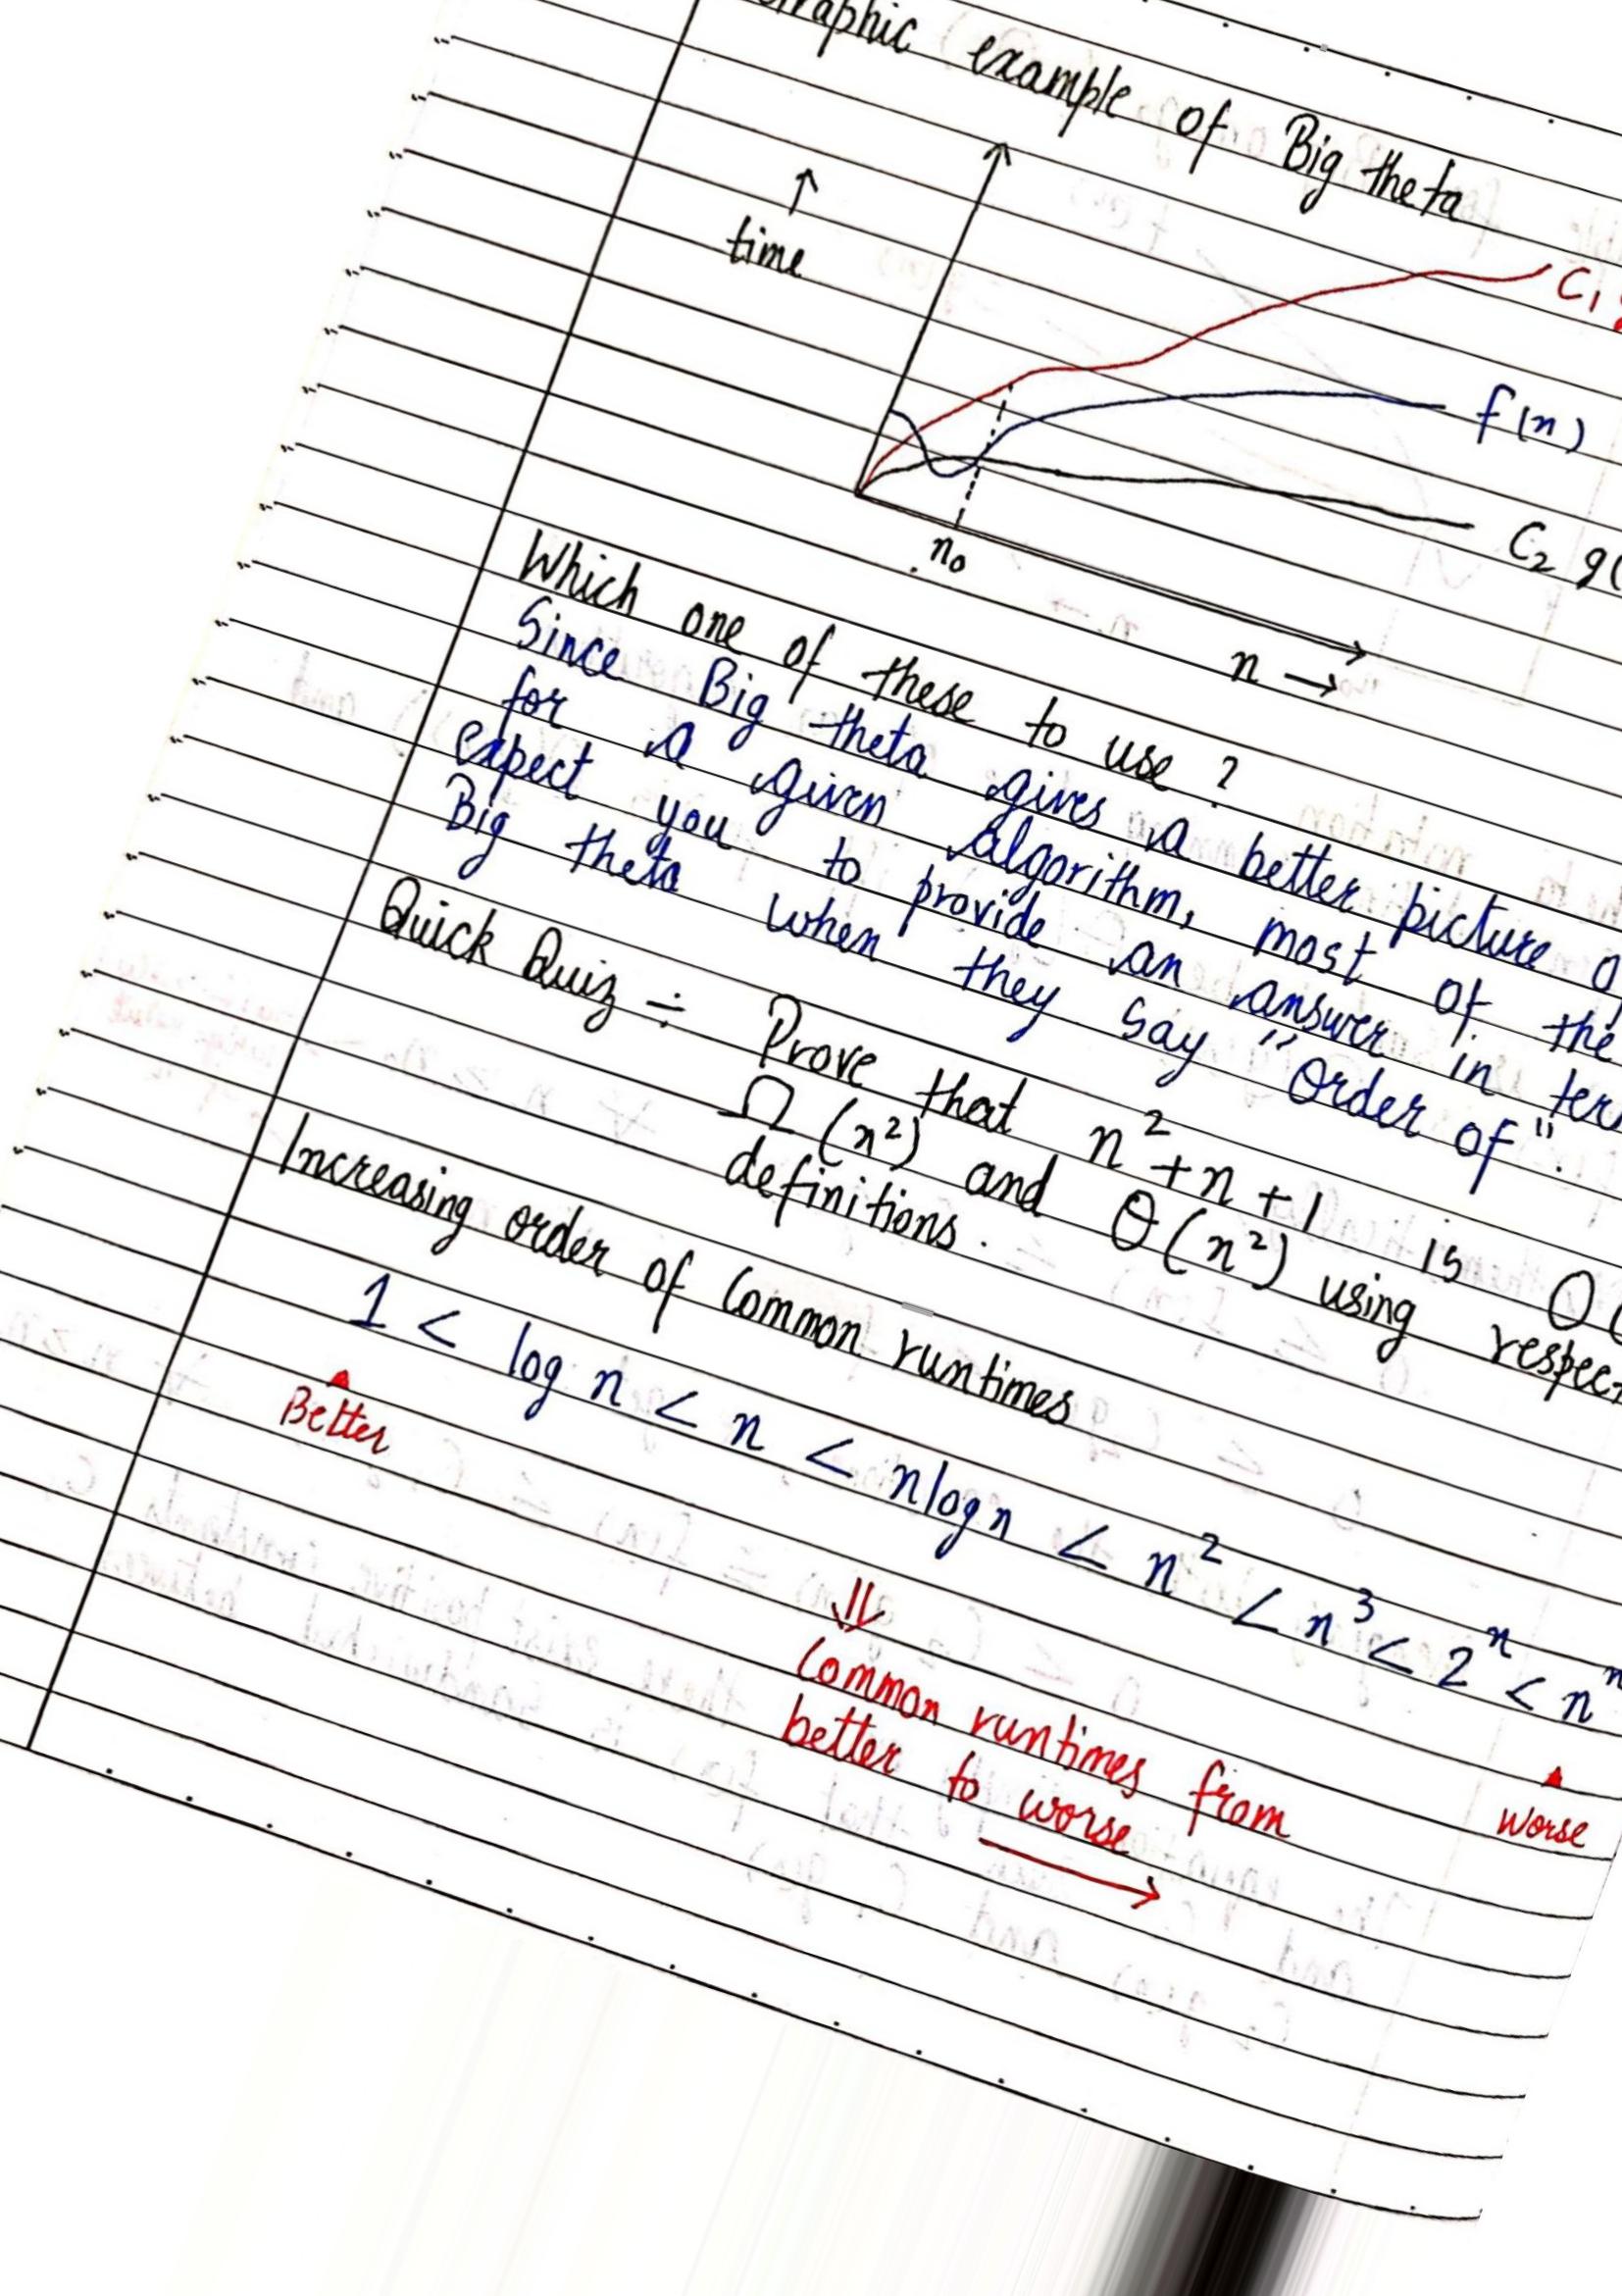 example of Big theta
↑
time
C₁
f(n)
C₂ g(
n₀
n →
Which one of these to use ?
Since Big theta gives a better picture
for a given algorithm, most of the
expect you to provide an answer in
Big theta when they say "Order of".
Quick Quiz ÷ Prove that n² + n + 1 is O(
Ω (n²) and Θ (n²) using
definitions.
Increasing order of Common runtimes
1 < log n < n < nlogn < n² < n³ < 2ⁿ < nⁿ
Better
Worse
Common runtimes from
better to worse